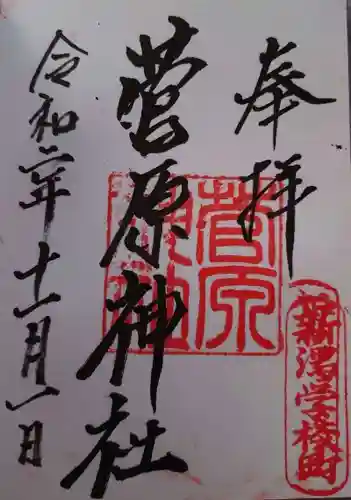 奉拝
新潟学校町
菅原神社
菅原神社
令和六年十一月一日